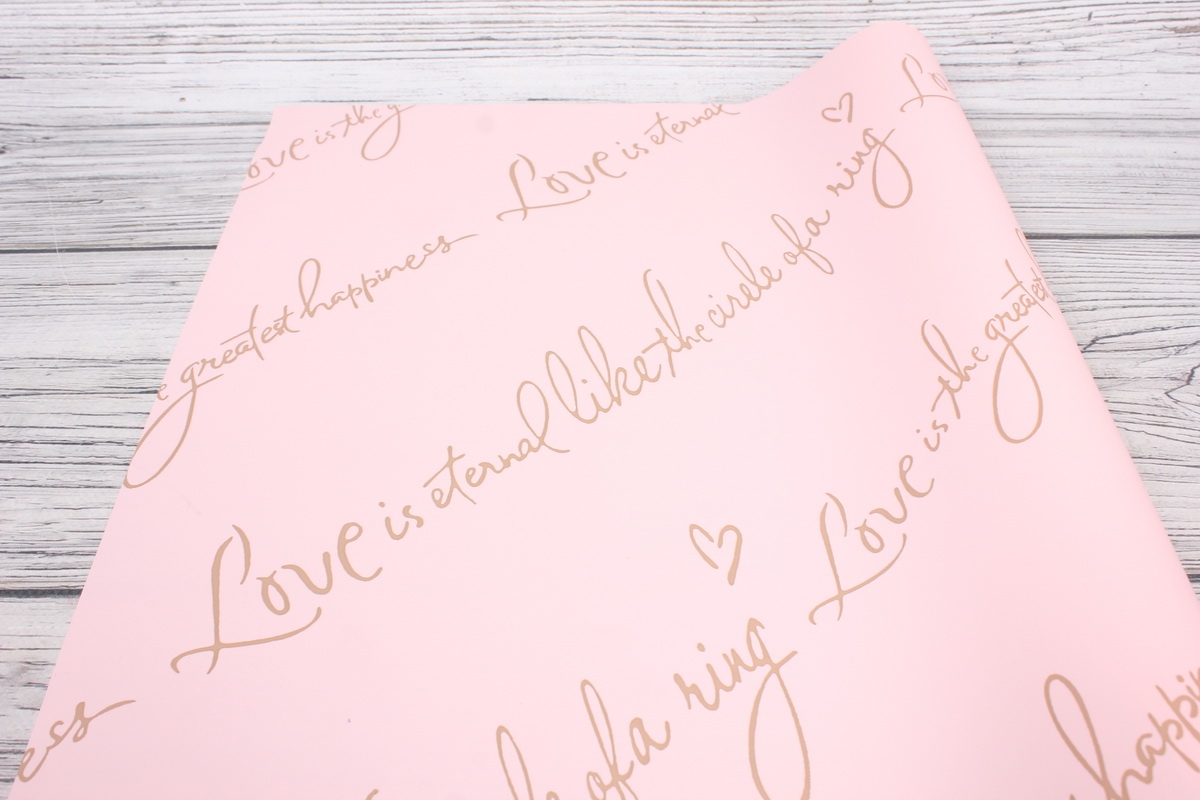 Love is the g
Love is eternal
Lo
e greatest happiness
Love is eternal like the circle of a ring
Love is the greatest
ess
of a ring
happi